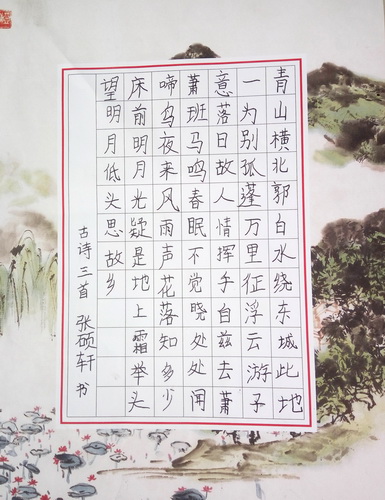 青山横北郭白水绕东城此地
一为别孤蓬万里征浮云游子
意落日故人情挥手自兹去萧
萧班马鸣春眠不觉晓处处闻
啼鸟夜来风雨声花落知多少
床前明月光疑是地上霜举头
望明月低头思故乡
古诗三首 张硕轩 书